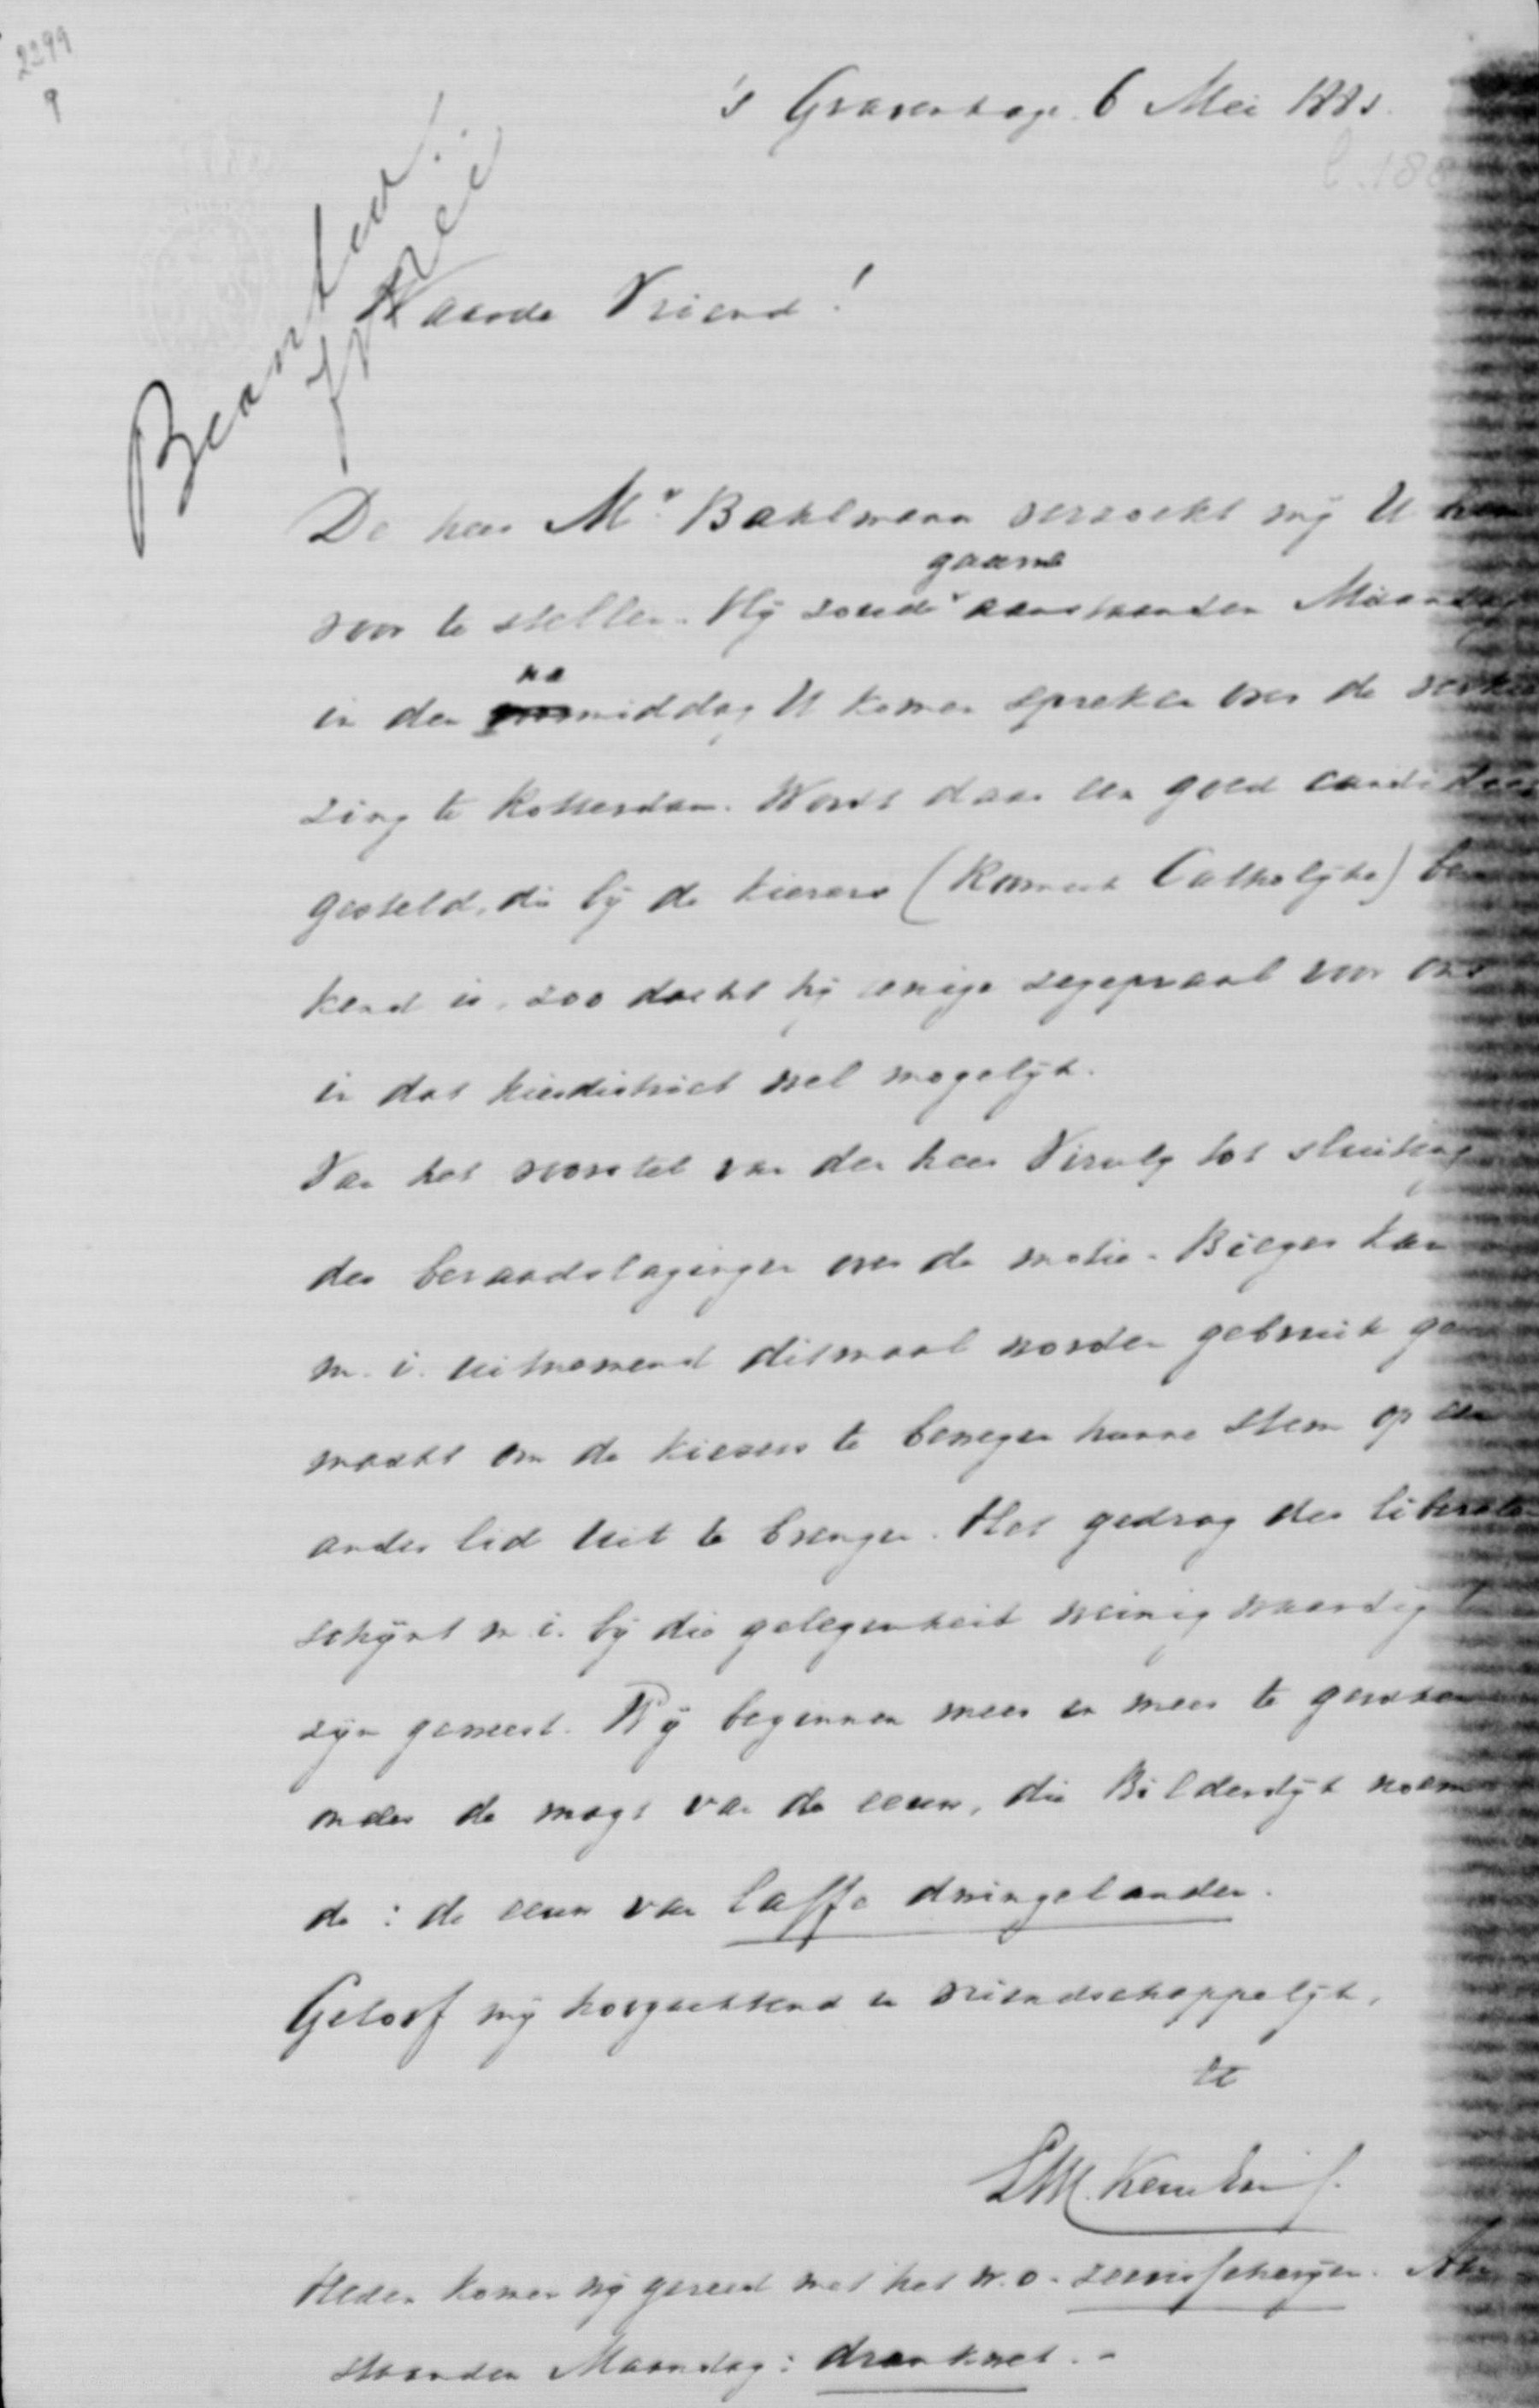 2299
9
's Gravenhage 6 Mei 1881.
Beantw.
Waarde Vriend!
De heer Mr. Bahlmann verzoekt mij U hem
voor te stellen. Hij zoude gaarne aanstaanden Maandag
in den namiddag U komen spreken over de verkie
zing te Rotterdam. Wordt daar een goed candidaat
gesteld, die bij de kiezers (Roomsch Catholijke) be
kend is, zoo dacht hij eenige zegepraal voor ons
in dat kiesdistrict wel mogelijk.
Van het voorstel van den heer Viruly tot sluiting
der beraadslagingen over de motie-Bieger kan
m.i. uitnemend ditmaal worden gebruik ge
maakt om de kiezers te bewegen hunne stem op een
ander lid uit te brengen. Het gedrag der liberalen
schijnt m.i. bij die gelegenheid weinig waardig te
zijn geweest. Wij beginnen meer en meer te geraken
onder de magt van de eeuw, die Bilderdijk noem
de: de eeuw van laffe dwingelanden.
Geloof mij hoogachtend en vriendschappelijk,
tt
Heden komen wij gereed met het w.o. zeevisscherijen. Aan
staanden Maandag: drankwet. -